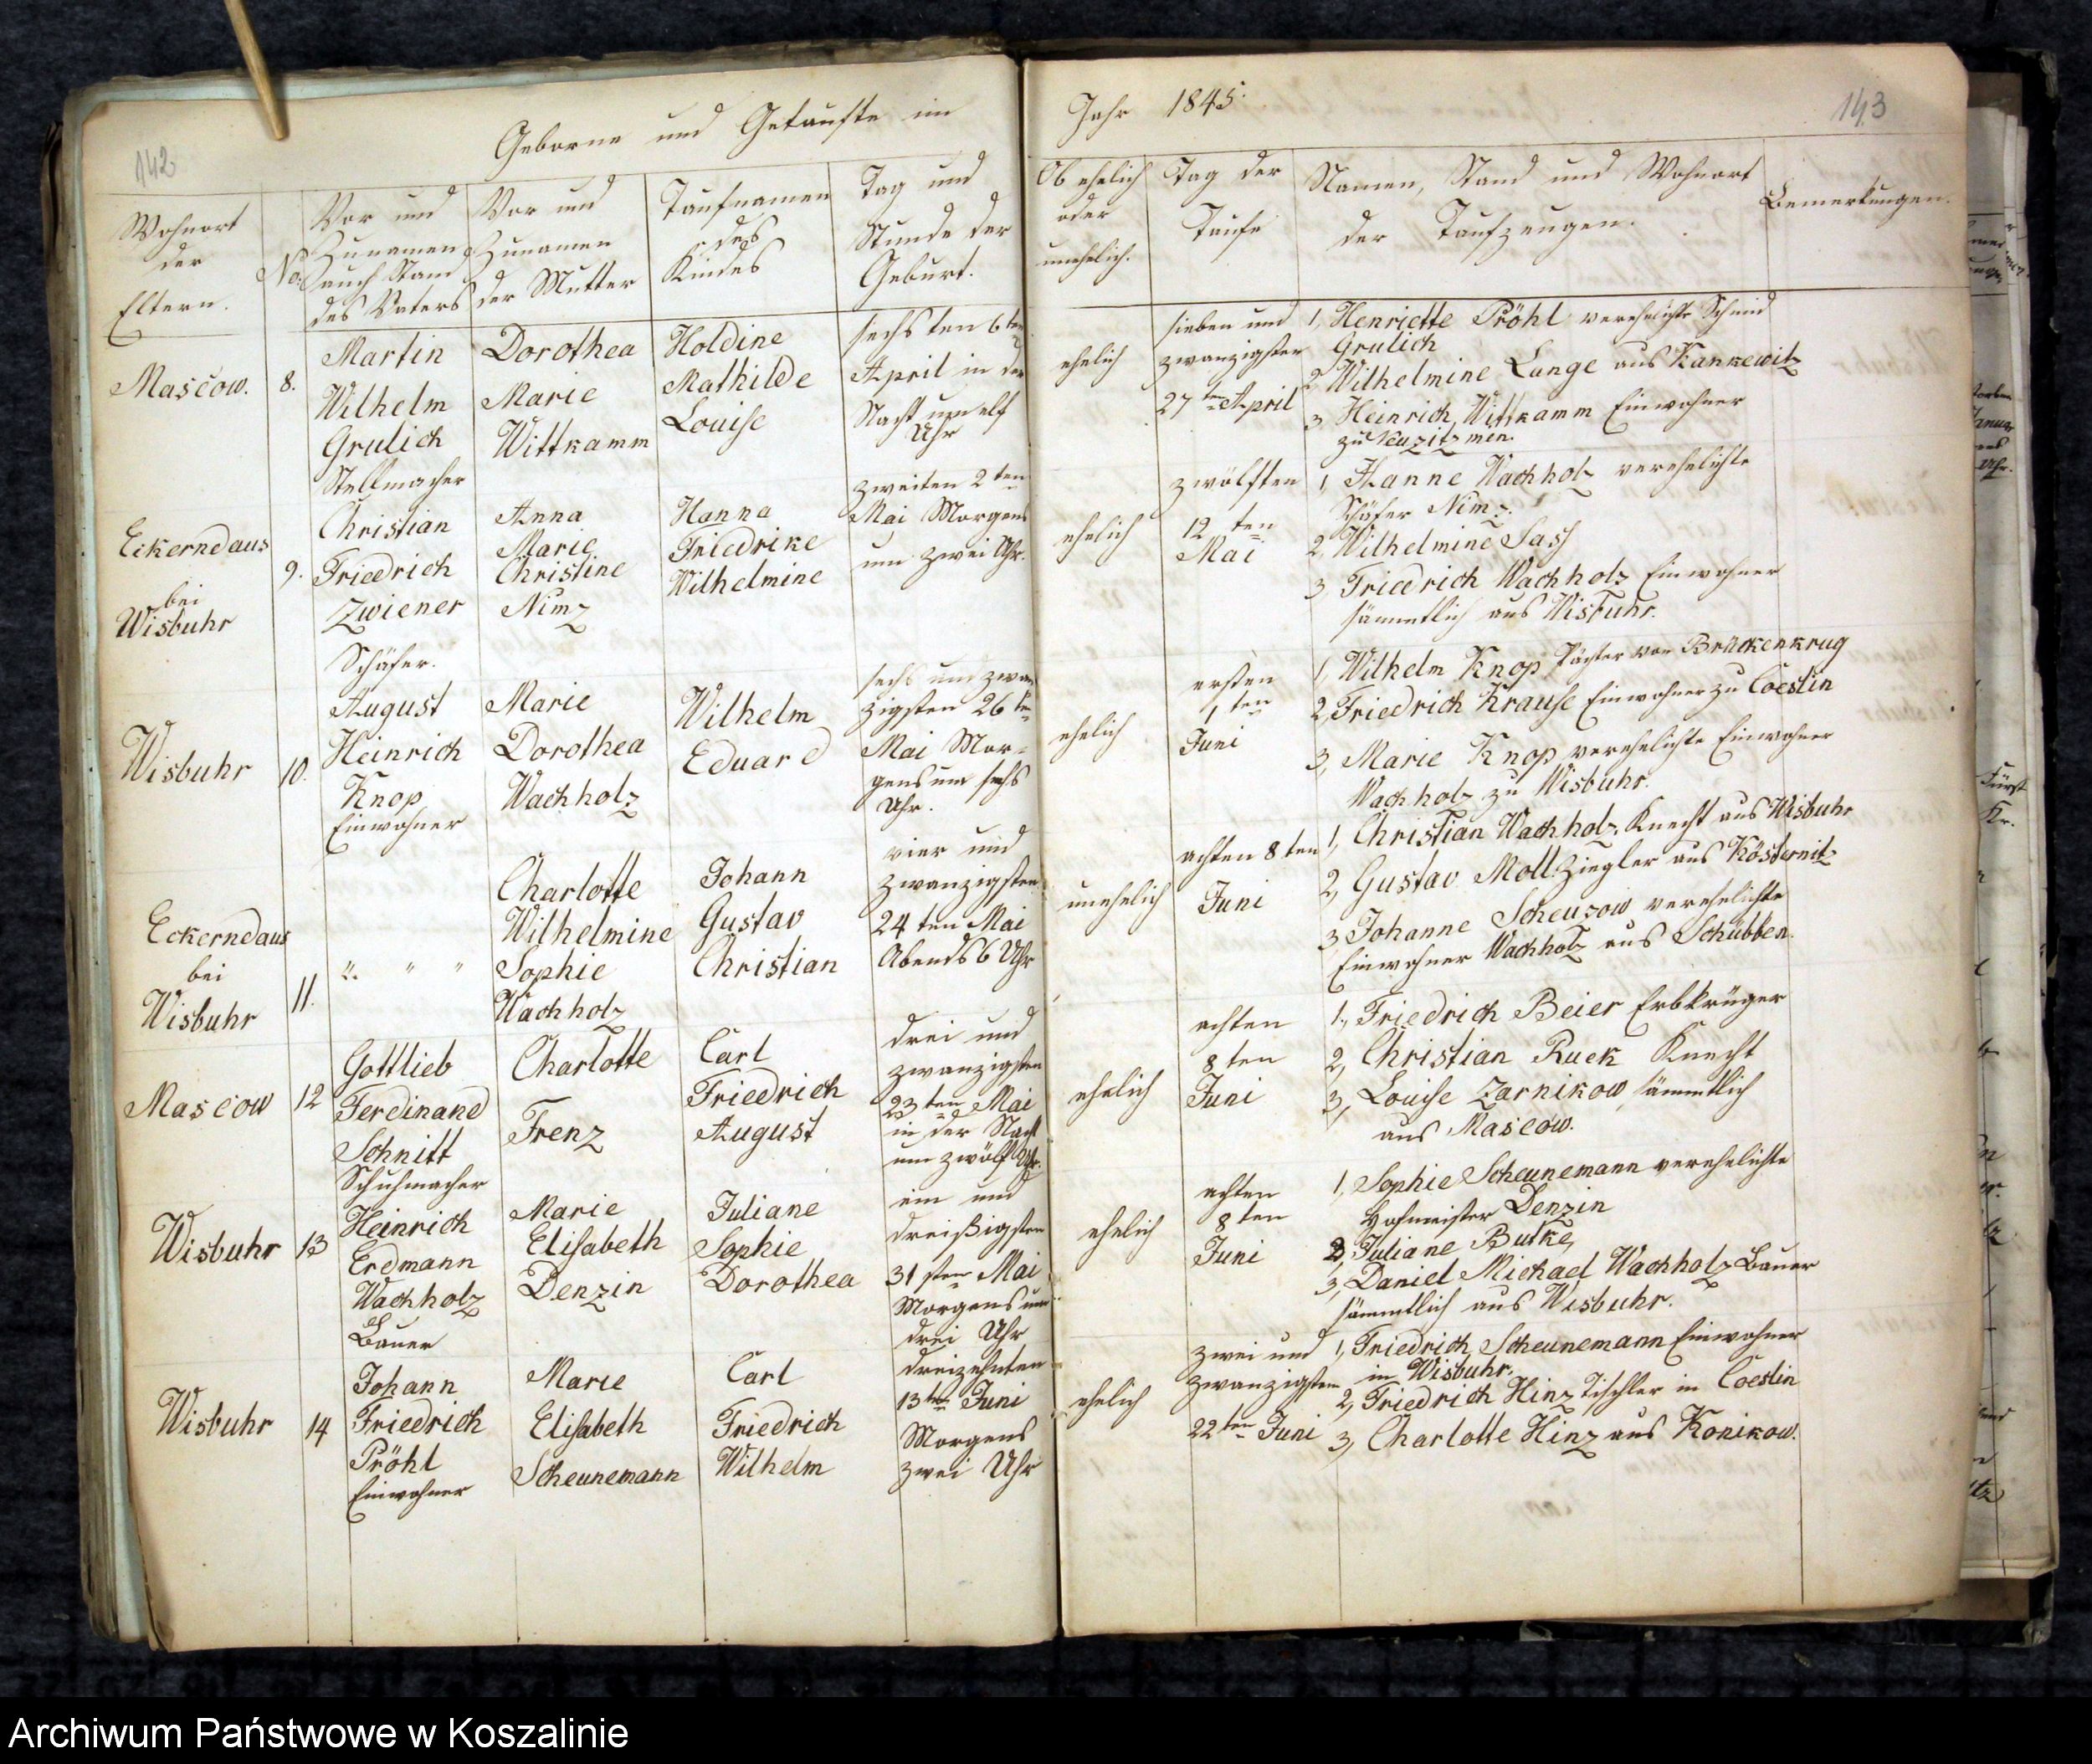 142
Geborne und Getaufte im
Wohnort
der
Eltern.
No.
Vor und
Zunamen
auch Stand
des Vaters
Vor und
Zunamen
der Mutter
Taufnamen
des
Kindes
Tag und
Stunde der
Geburt.
Mascow.
8.
Martin
Wilhelm
Grulich
Stellmacher
Dorothea
Marie
Wittkamm
Holdine
Mathilde
Louise
sechsten 6ten
April in der
Nacht um elf
Uhr
Eckerndaus
bei
Wisbuhr
9.
Christian
Friedrich
Zwiener
Schäfer.
Anna
Marie
Christine
Nimz
Hanna
Friedrike
Wilhelmine
zweiten 2ten
Mai Morgens
um zwei Uhr.
Wisbuhr
10.
August
Heinrich
Knop
Einwohner
Marie
Dorothea
Wachholz
Wilhelm
Eduard
sechs und zwan
zigsten 26ten
Mai Mor-
gens um sechs
Uhr.
Eckerndaus
bei
Wisbuhr
11.
" " "
Charlotte
Wilhelmine
Sophie
Wachholz
Johann
Gustav
Christian
vier und
zwanzigsten
24ten Mai
Abends 6 Uhr
Mascow
12
Gottlieb
Ferdinand
Schnitt
Schuhmacher
Charlotte
Frenz
Carl
Friedrich
August
drei und
zwanzigsten
23ten Mai
in der Nacht
um zwölf Uhr.
Wisbuhr
13
Heinrich
Erdmann
Wachholz
Bauer
Marie
Elisabeth
Denzin
Juliane
Sophie
Dorothea
ein und
dreißigsten
31sten Mai
Morgens um
drei Uhr
Wisbuhr
14
Johann
Friedrich
Pröhl
Einwohner
Marie
Elisabeth
Scheunemann
Carl
Friedrich
Wilhelm
dreizehnten
13ten Juni
Morgens
zwei Uhr
Jahr 1845.
143
Ob ehelich
oder
unehelich.
Tag der
Taufe
Namen, Stand und Wohnort
der Taufzeugen.
Bemerkungen.
ehelich
sieben und
zwanzigsten
27ten April
1, Henriette Pröhl verehelichte Schmid
Grulich
2, Wilhelmine Lange aus Kankewitz
3, Heinrich Wittkamm Einwohner
zu
ehelich
zwölften
12ten
Mai
1, Hanne Wachholz verehelichte
Schäfer Nimz.
2, Wilhelmine Sass
3, Friedrich Wachholz Einwohner
sämmtlich aus Wisbuhr.
ehelich
ersten
1ten
Juni
1, Wilhelm Knop Pächter von Brückenkrug
2, Friedrich Krause Einwohner zu Coeslin
3, Marie Knop verehelichte Einwohner
Wachholz zu Wisbuhr.
unehelich
achten 8ten
Juni
1, Christian Wachholz, Knecht aus Wisbuhr
2, Gustav Moll: Ziegler aus Kösternitz
3, Johanne Scheuzow verehelichte
Einwohner Wachholz aus Schübben.
ehelich
achten
8ten
Juni
1., Friedrich Beier Erbkrüger
2, Christian Ruek Knecht
3, Louise Zarnikow, sämmtlich
aus Mascow.
ehelich
achten
8ten
Juni
1, Sophie Scheunemann verehelichte
Hofmeister Denzin
2, Juliane Butke,
3, Daniel Michael Wachholz Bauer
sämmtlich aus Wisbuhr.
ehelich
zwei und
zwanzigsten
22ten Juni
1, Friedrich Scheunemann Einwohner
in Wisbuhr.
2, Friedrich Hinz Tischler in Coeslin
3, Charlotte Hinz aus Konikow.
Archiwum Państwowe w Koszalinie